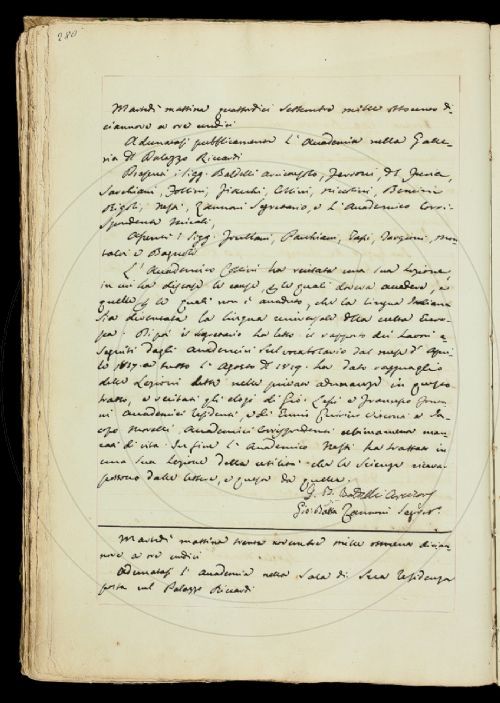 280
Martedì mattina quattordici Settembre mille ottocento di-
ciannove a ore undici
Adunatasi pubblicamente l'Accademia nella Galle-
ria del Palazzo Riccardi
Presenti i Sigg. Baldelli Arciconsolo, Ferroni, Del Furia,
Sarchiani, Follini, Fiacchi, Collini, Niccolini, Bencini
Rigoli, Nesti, Zannoni Segretario, e l'Accademico Corri-
spondente Micali,
Assenti i Sigg. Frullani, Pacchiani, Targioni, Mon-
talvi e Bagnoli
L'Accademico Collini ha recitata una sua Lezione,
in cui ha discusse le cause, per le quali doveva accadere, e
quelle per le quali non è accaduto, che la lingua Italiana
sia divenuta la lingua universale della culta Euro-
pa. Il Segretario ha letto il rapporto dei lavori e-
seguiti dagli Accademici sul vocabolario dal mese d'Apri-
le 1817 a tutto l'Agosto del 1819. ha dato ragguaglio
delle Lezioni dette nelle private adunanze in questo
tratto, e recitati gli elogi di Gio. Lessi e Francesco
Accademici residenti, e di Ennio Quirino Visconti e
Morelli Accademici Corrispondenti ultimamente man-
cati di vita. In fine l'Accademico Nesti ha trattato in
una sua Lezione della utilità che le Scienze ricever
possono dalle lettere, e queste da quelle.
G. B. Baldelli Arcicons.
Gio: Batta Zannoni Segret.
Martedì mattina trenta novembre mille ottocento dician-
nove a ore undici
Adunatasi l'Accademia nella Sala di Sua residenza
posta nel Palazzo Riccardi